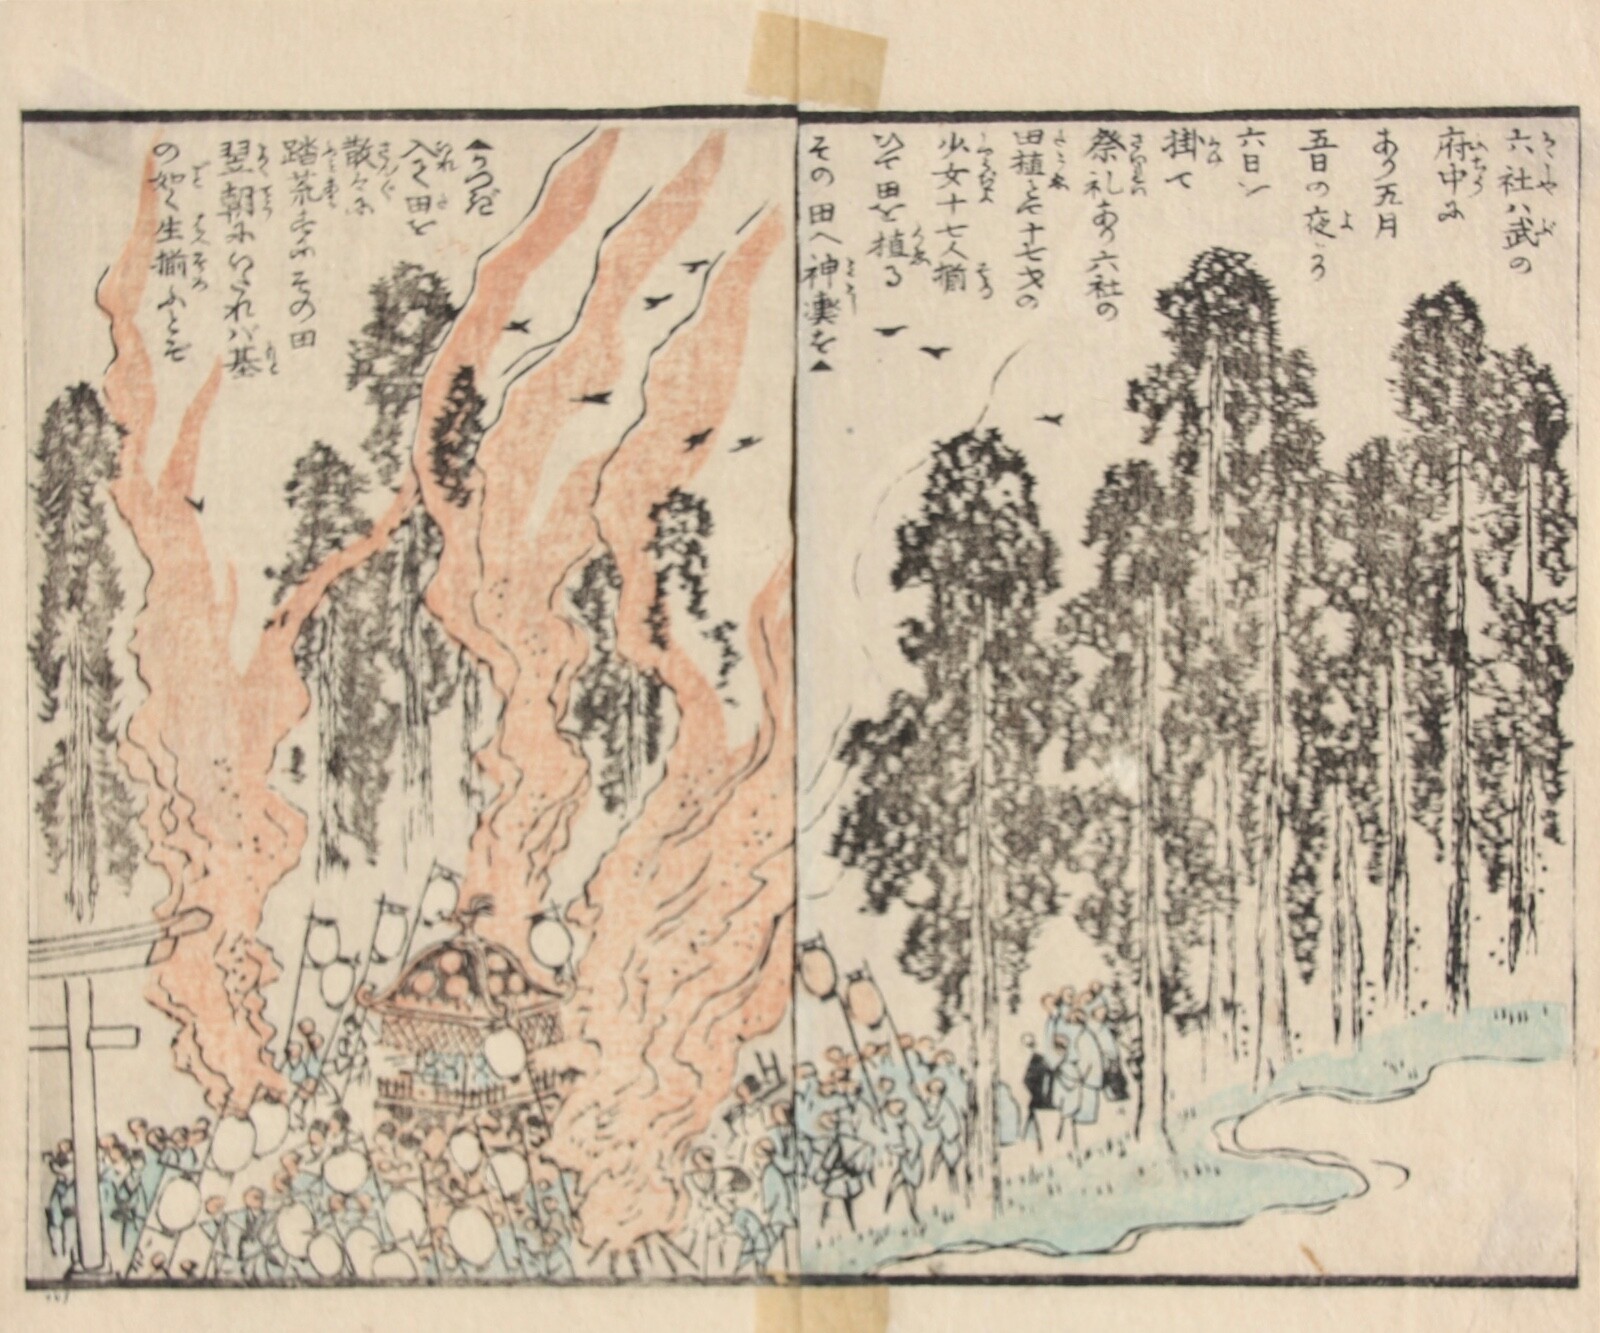 六社ハ武の
府中に
あり五月
五日の夜より
六日ヘ
掛て
祭礼あり六社の
田植とて十七才の
少女十七人揃
ひて田を植る
その田へ神輿を▲
▲かつぎ
入て田を
散々に
踏荒すにその田
翌朝にいたれバ基
の如く生揃ふとぞ